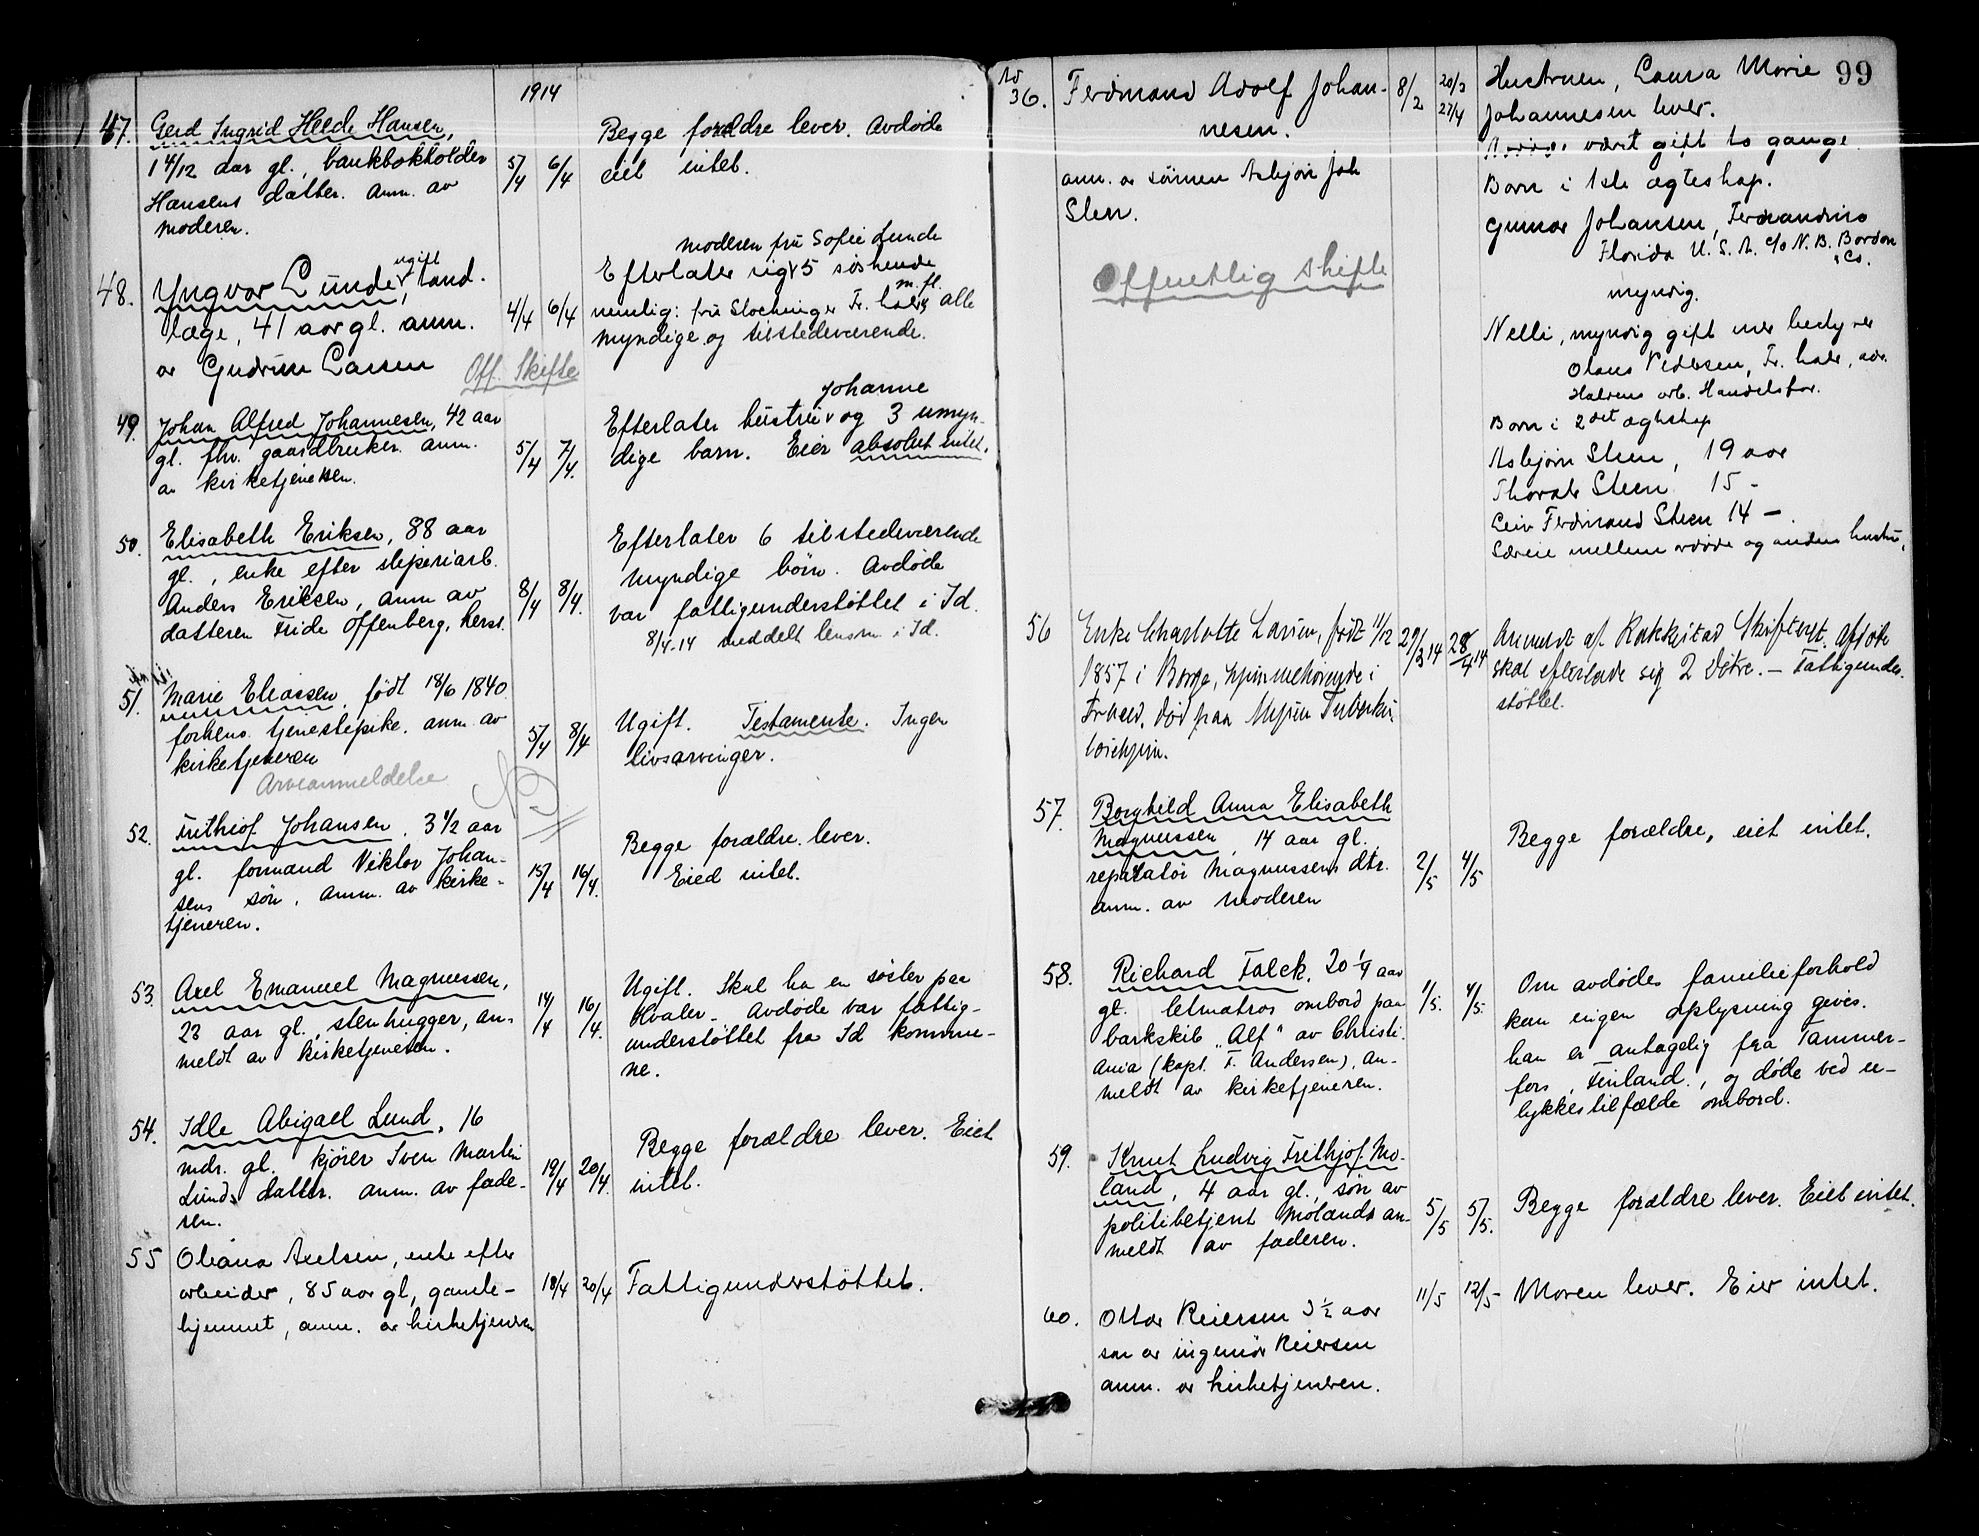 1914
47. Gerd Ingrid Heede Hansen,
1 4/12 aar gl., bankbokholder
Hansens datter. Anm. av
moderen.
5/4 6/4
Begge forældre lever. Avdøde
eiet intet.
48. Yngvar Lunde, ugift, tand-
læge, 41 aar gl. anm.
av Gudrun Larsen
Off. Skifte
4/4 6/4
moderen fru Sofie Lunde
Efterlater sig 5 søskende
nemlig: fru Fr. hald m. fl. alle
myndige og tilstedeværende.
49. Johan Alfred Johannesen, 42 aar
gl. fhv. gaardbruker. anm.
av kirketjeneren.
5/4 7/4.
Efterlater hustru Johanne og 3 umyn-
dige barn. Eier absolut intet.
50. Elisabeth Eriksen, 88 aar
gl., enke efter sliperiarb.
Anders Eriksen, anm av
datteren Fride Offenberg, herst.
8/4 8/4.
Efterlater 6 tilstedeværende
myndige børn. Avdøde
var fattigunderstøttet i Id.
8/4-14 meddelt lensm. i Id.
51. Marie Eliassen, født 18/6 1840
forhens. tjenestepike. anm. av
kirketjeneren
Arveanmeldelse
5/4 8/4
Ugift. Testamente. Ingen
livsarvinger.
52. Frithiof Johansen, 3 1/2 aar
gl. formand Viktor Johan-
sens søn, anm. av kirke-
tjeneren.
15/4 16/4.
Begge forældre lever.
Eied intet.
53. Axel Emanuel Magnussen,
23 aar gl., stenhugger, an-
meldt av kirketjeneren.
14/4 16/4.
Ugift. Skal ha en søster paa
Hvaler. Avdøde var fattig-
understøttet fra Id kommu-
ne.
54. Idle Abigael Lund, 16
mdr. gl. kjører Sven Martin
Lunds datter. anm. av fade-
ren.
19/4 20/4.
Begge forældre lever. Eiet
intet.
55 Oliana Axelsen, enke efter
arbeider, 85 aar gl, gamle-
hjemmet, anm. av kirketjeneren
18/4 20/4
Fattigunderstøttet.
99
36. Ferdinand Adolf Johan-
nesen.
anm. av sønnen Asbjørn Joh
Steen.
Offentlig skifte
8/2 20/2
27/4
Hustruen, Laura Marie
Johannesen lever.
været gift to gange.
Barn i 1ste ægteskap.
Gunnar Johansen, Fernandina
Florida U. S. A. c/o N. B. Bordon
& Co.
myndig.
Nelli, myndig gift med
Olaus Pedersen, Fr. hald, adr.
arb. Handelsfor.
Barn i 2det ægteskap
Asbjørn Steen, 19 aar
Thorvald Steen 15 -
Leiv Ferdinand Steen 14 -.
Særeie mellem avdøde og anden hustru.
56 Enke Charlotte Larsen, født 11/12
1857 i Borge, hjemmehørende i
Frhald, død paa Mysen Tuberku-
losehjem.
29/3 14 28/4 14
Anmeldt af Rakkestad Skifteret. Afdøde
skal efterlade sig 2 døtre. - Fattigunder-
støttet.
57. Borghild Anna Elisabeth
Magnussen, 14 aar gl.
reparatør Magnussens dtr.
anm. av moderen
2/5 4/5
Begge forældre, eiet intet.
58. Richard Falck, 20 1/4 aar
gl. letmatros ombord paa
barkskib "Alf" av Christi-
ania (kapt. F. Andersen), an-
meldt av kirketjeneren.
1/5. 4/5.
Om avdødes familieforhold
kan ingen oplysning gives.
han er antagelig fra Tammer-
fors, Finland., og døde ved u-
lykkestilfælde ombord.
59. Knut Ludvig Frithjof Mo-
land, 4 aar gl., søn av
politibetjent Molands an-
meldt av faderen.
5/5 5/5.
Begge forældre lever. Eiet intet.
60. Ottar Reiersen 3 1/2 aar
søn av ingeniør Reiersen
anm. av kirketjeneren.
11/5 12/5
Moren lever. Eier intet.